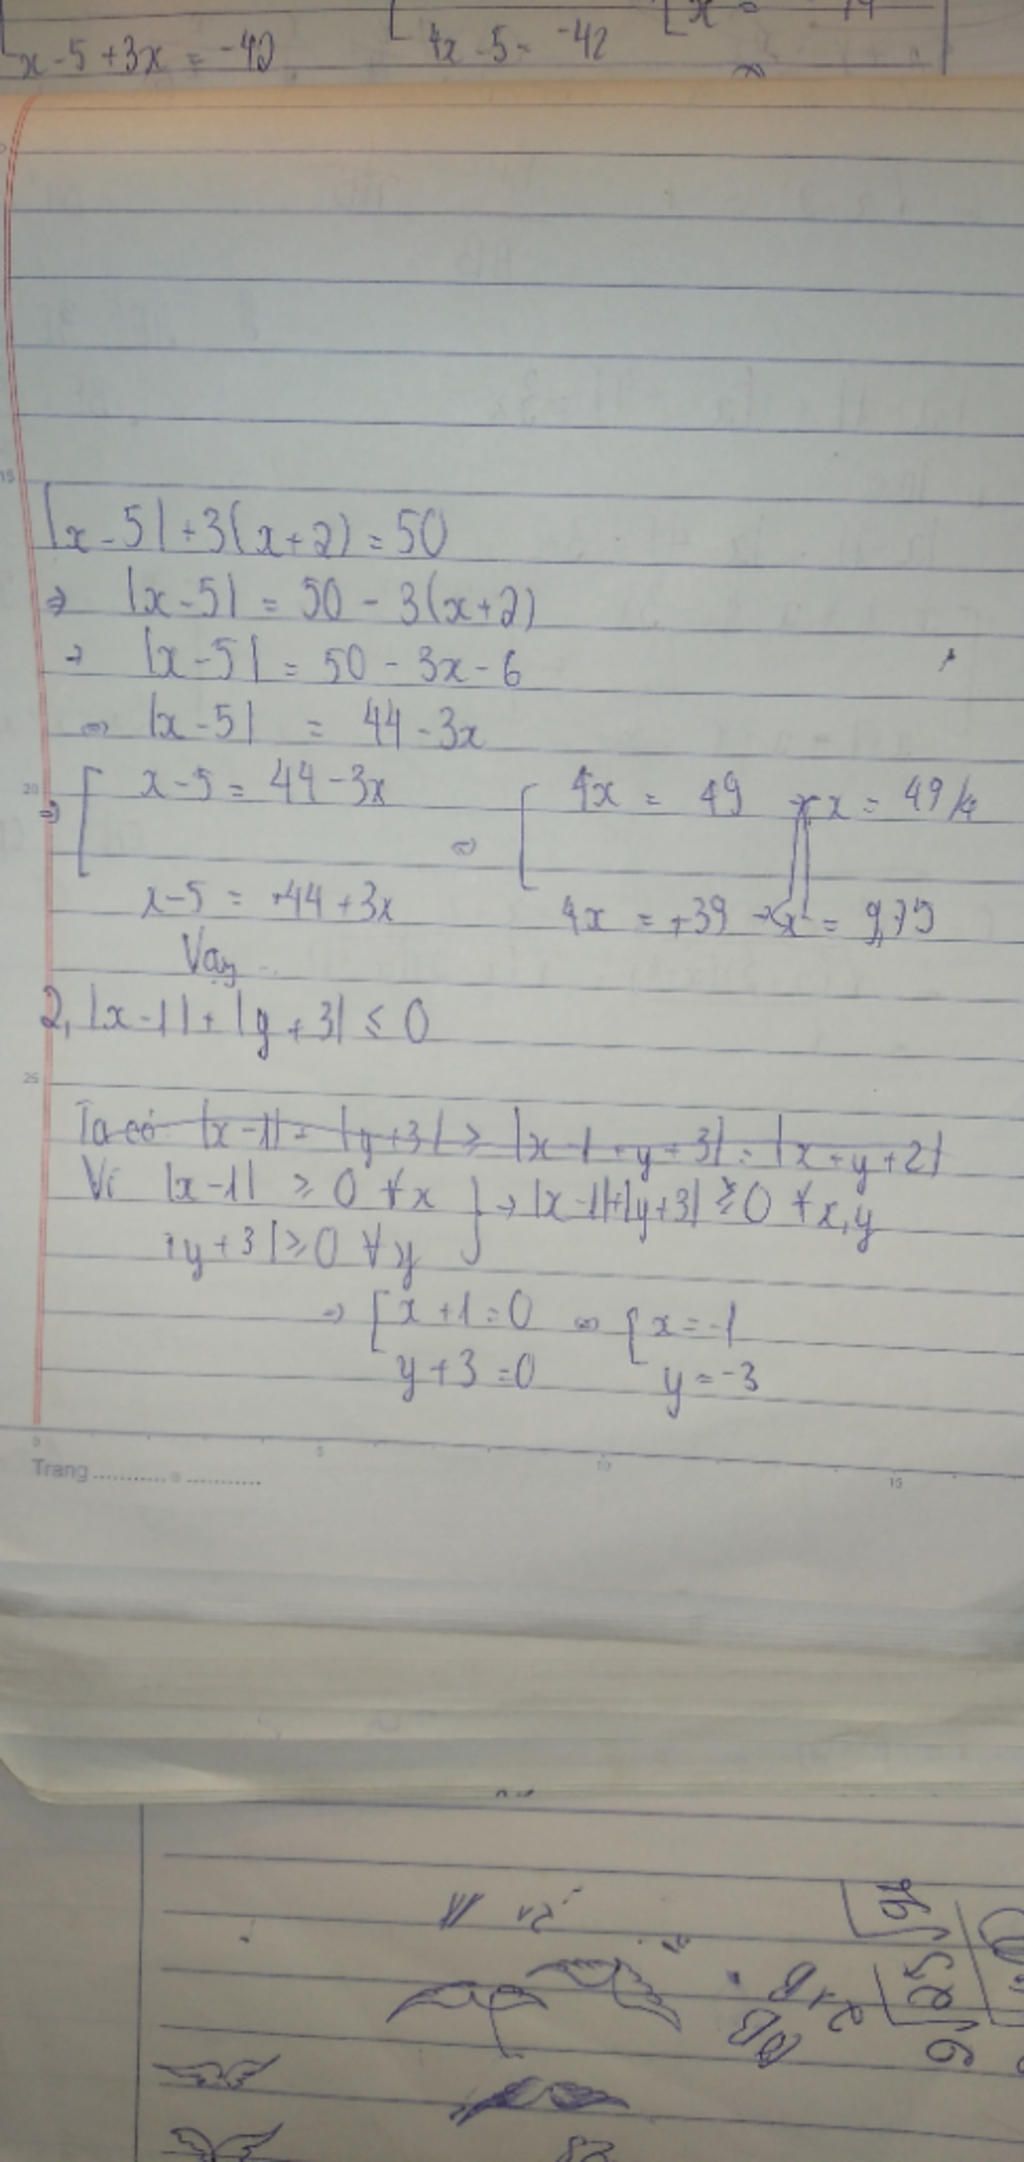 x-5+3x = -42
4x-5 = -42
|x-5|+3(x+2)=50
⇒ |x-5| = 50 - 3(x+2)
→ |x-5| = 50 - 3x - 6
⇔ |x-5| = 44 - 3x
⇒ [ x-5 = 44-3x ⇔ [ 4x = 49 x = 49/4
x-5 = -44+3x 4x = +39 → x = 9,75
Vậy
2, |x-1|+|y+3| ≤ 0
Ta có |x-1| + |y+3| ≥ |x-1+y+3| = |x+y+2|
Vì |x-1| ≥ 0 ∀x } → |x-1|+|y+3| ≥ 0 ∀x,y
|y+3| ≥ 0 ∀y
→ [ x+1=0 ⇔ { x=-1
y+3=0 y=-3
Trang